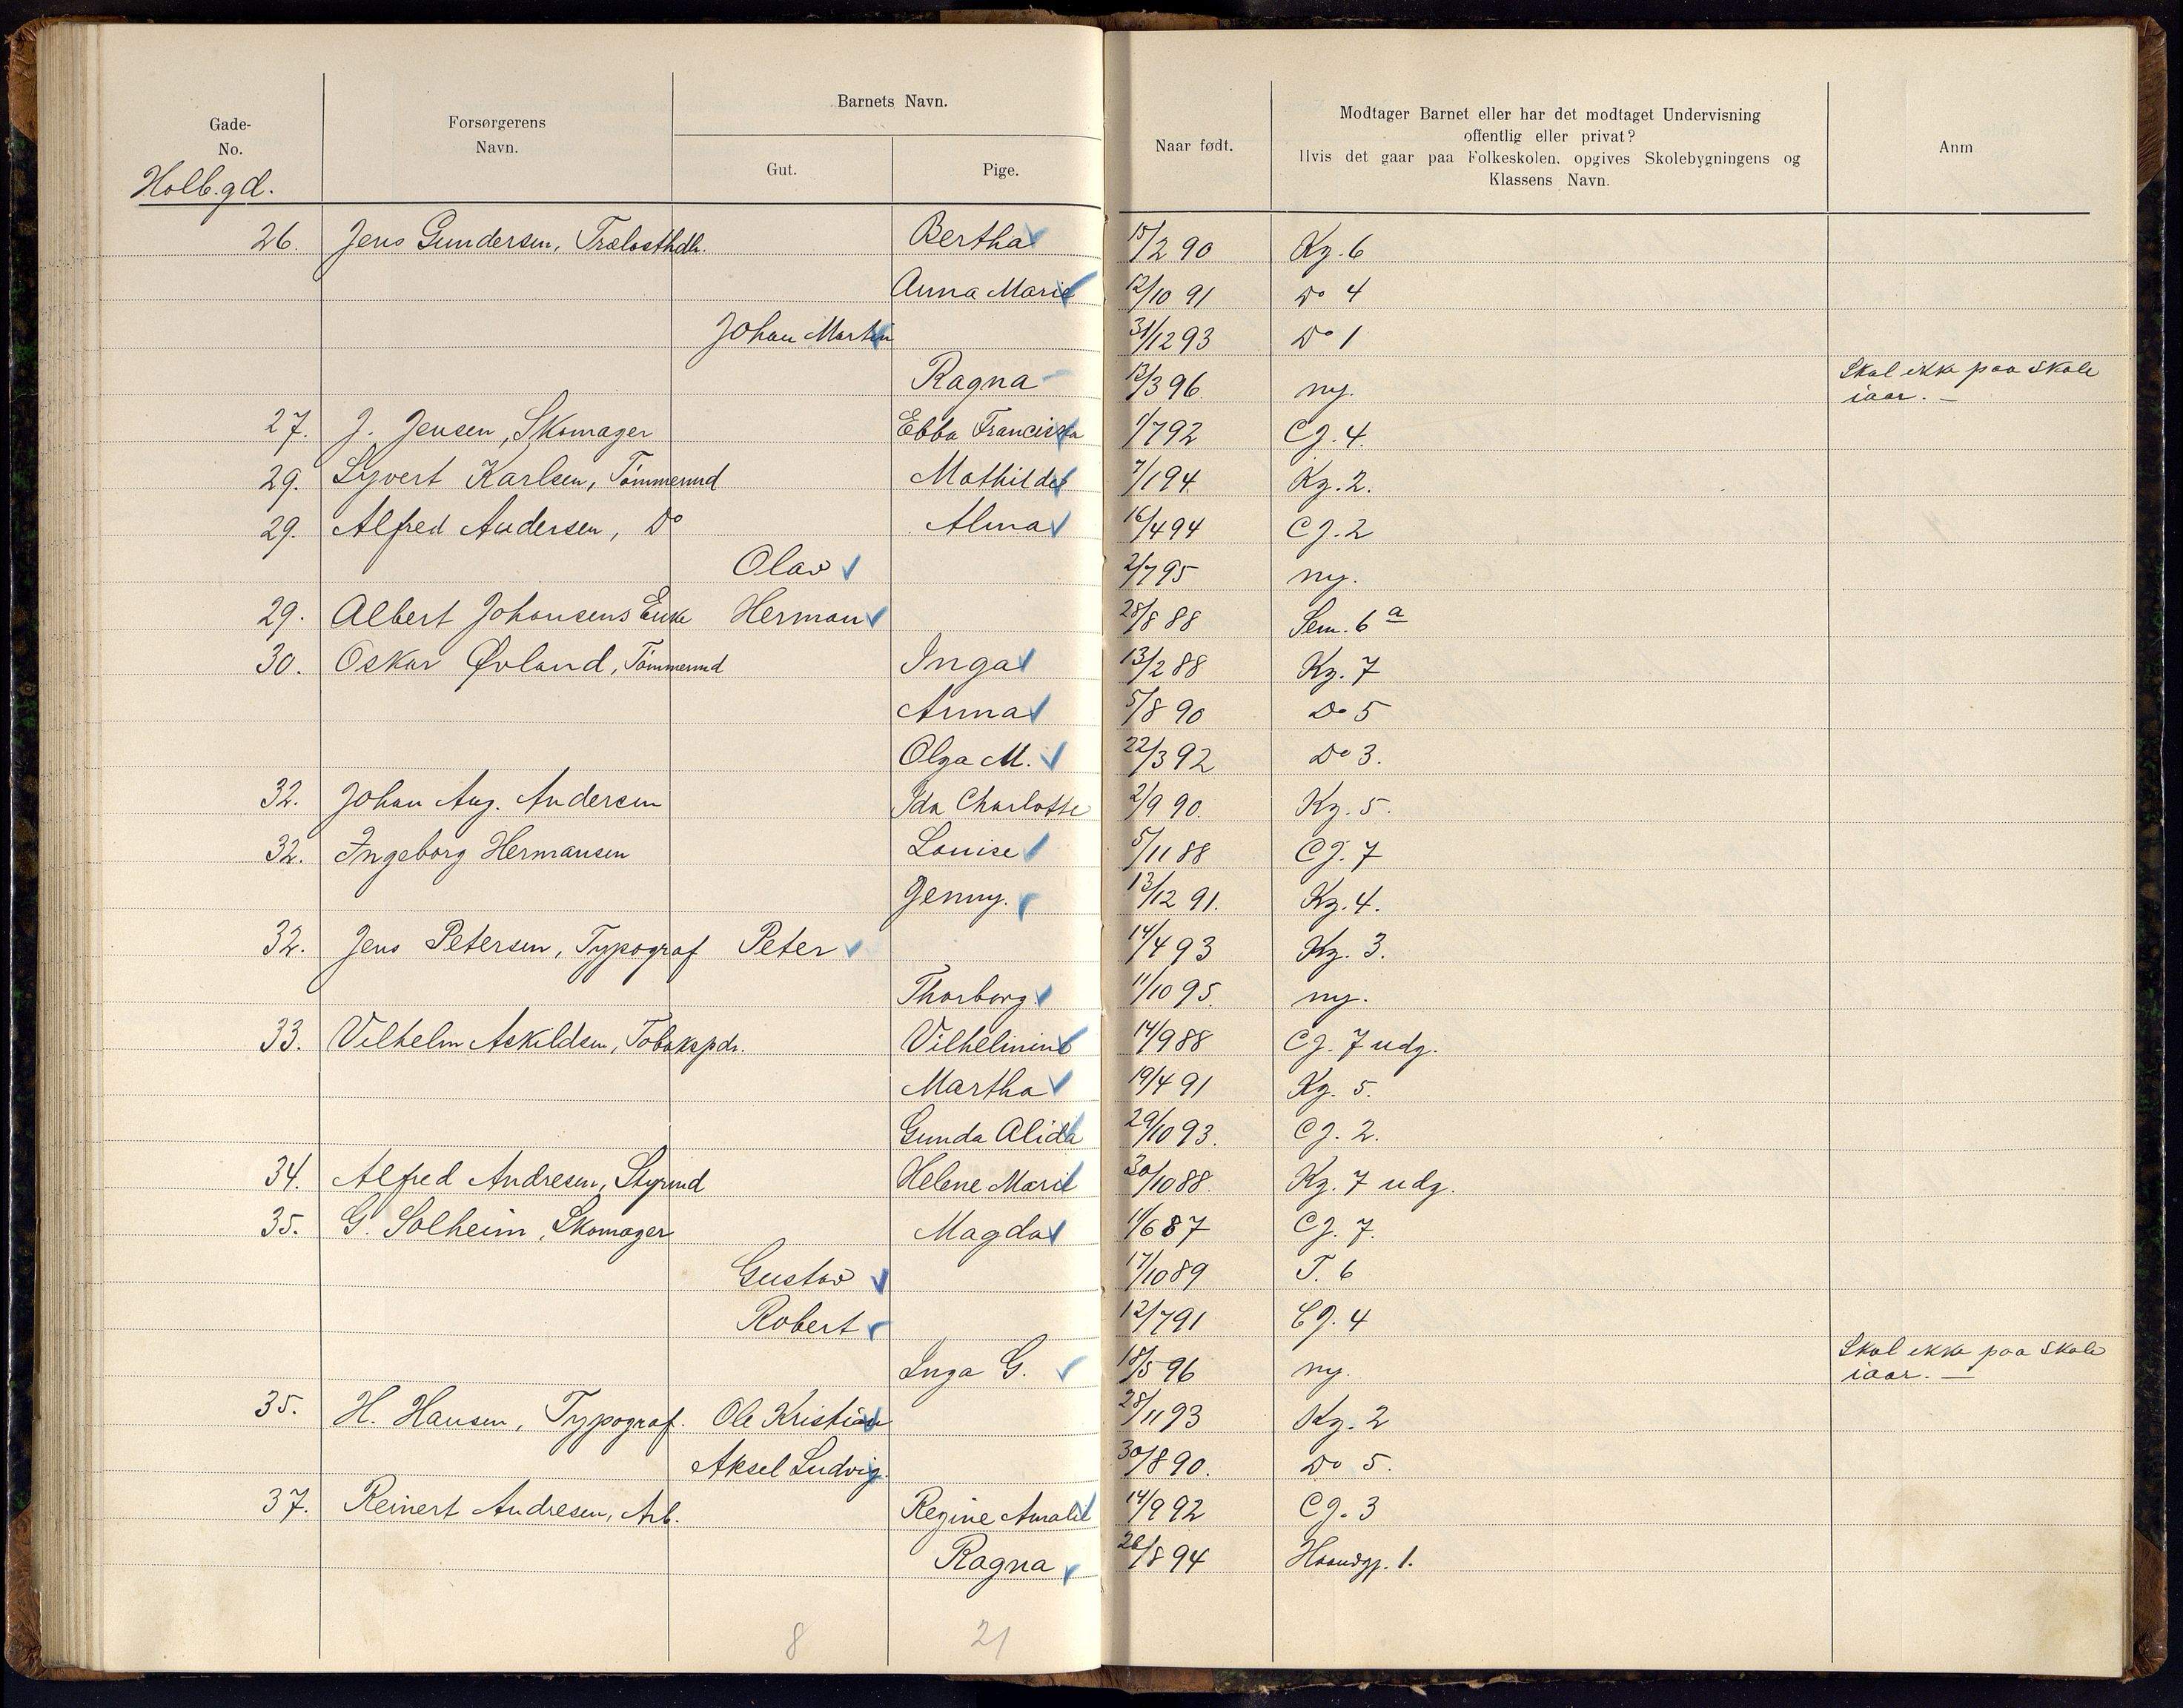 Gade-
No.
Forsørgerens
Navn.
Barnets Navn.
Gut.
Pige.
Naar født.
Modtager Barnet eller har det modtaget Undervisning
offentlig eller privat?
Hvis det gaar paa Folkeskolen, opgives Skolebygningens og
Klassens Navn.
Anm
Holb.gd.
26. Jens Gundersen, Trælasthdlr. Bertha 15/2 90 Kg. 6
Anna Marie 12/10 91 Do 4
Johan Martin 31/12 93 Do 1
Ragna 12/3 96 ny. Skal ikke paa Skole
iaar. —
27. J. Jensen, Skomager Ebba Franciska 1/7 92 CJ. 4.
29. Syvert Karlsen, Tømmermd Mathilde 7/1 94 Kg. 2.
29. Alfred Andersen, Do Alma 16/4 94 CJ. 2
Olav 2/7 95 ny.
29. Albert Johansens Enke Herman 28/8 88 Sem. 6 a
30. Oskar Øvland, Tømmermd Inga 13/2 88 Kg. 7
Anna 5/8 90 Do 5
Olga M. 22/3 92 Do 3.
32. Johan Aug. Andersen Ida Charlotte 2/9 90. Kg. 5.
32. Ingeborg Hermansen Louise 5/11 88 CJ. 7
Jenny. 13/12 91. Kg. 4.
32. Jens Petersen, Typograf Peter 14/4 93 Kg. 3.
Thorborg. 11/10 95. ny.
33. Vilhelm Askildsen, Tobakspdr. Vilhelmine 14/9 88 CJ. 7 udg.
Martha 19/4 91 Kg. 5.
Gunda Alida 29/10 93. CJ. 2.
34. Alfred Andresen, Styrmd Helene Marie 30/10 88. Kg. 7 udg.
35. G. Solheim, Skomager Magda 11/6 87 CJ. 7.
Gustav 17/10 89 T. 6
Robert 12/7 91 CJ. 4
Inga G. 18/5 96 ny. Skal ikke paa Skole
iaar. —
35. H. Hansen, Typograf. Ole Kristian 28/11 93 Kg. 2
Aksel Ludvig. 30/8 90. Do 5.
37. Reinert Andresen, Arb. Regine Amalie 14/9 92 CJ. 3
Ragna 26/8 94 Haandgj. 1.
8 21